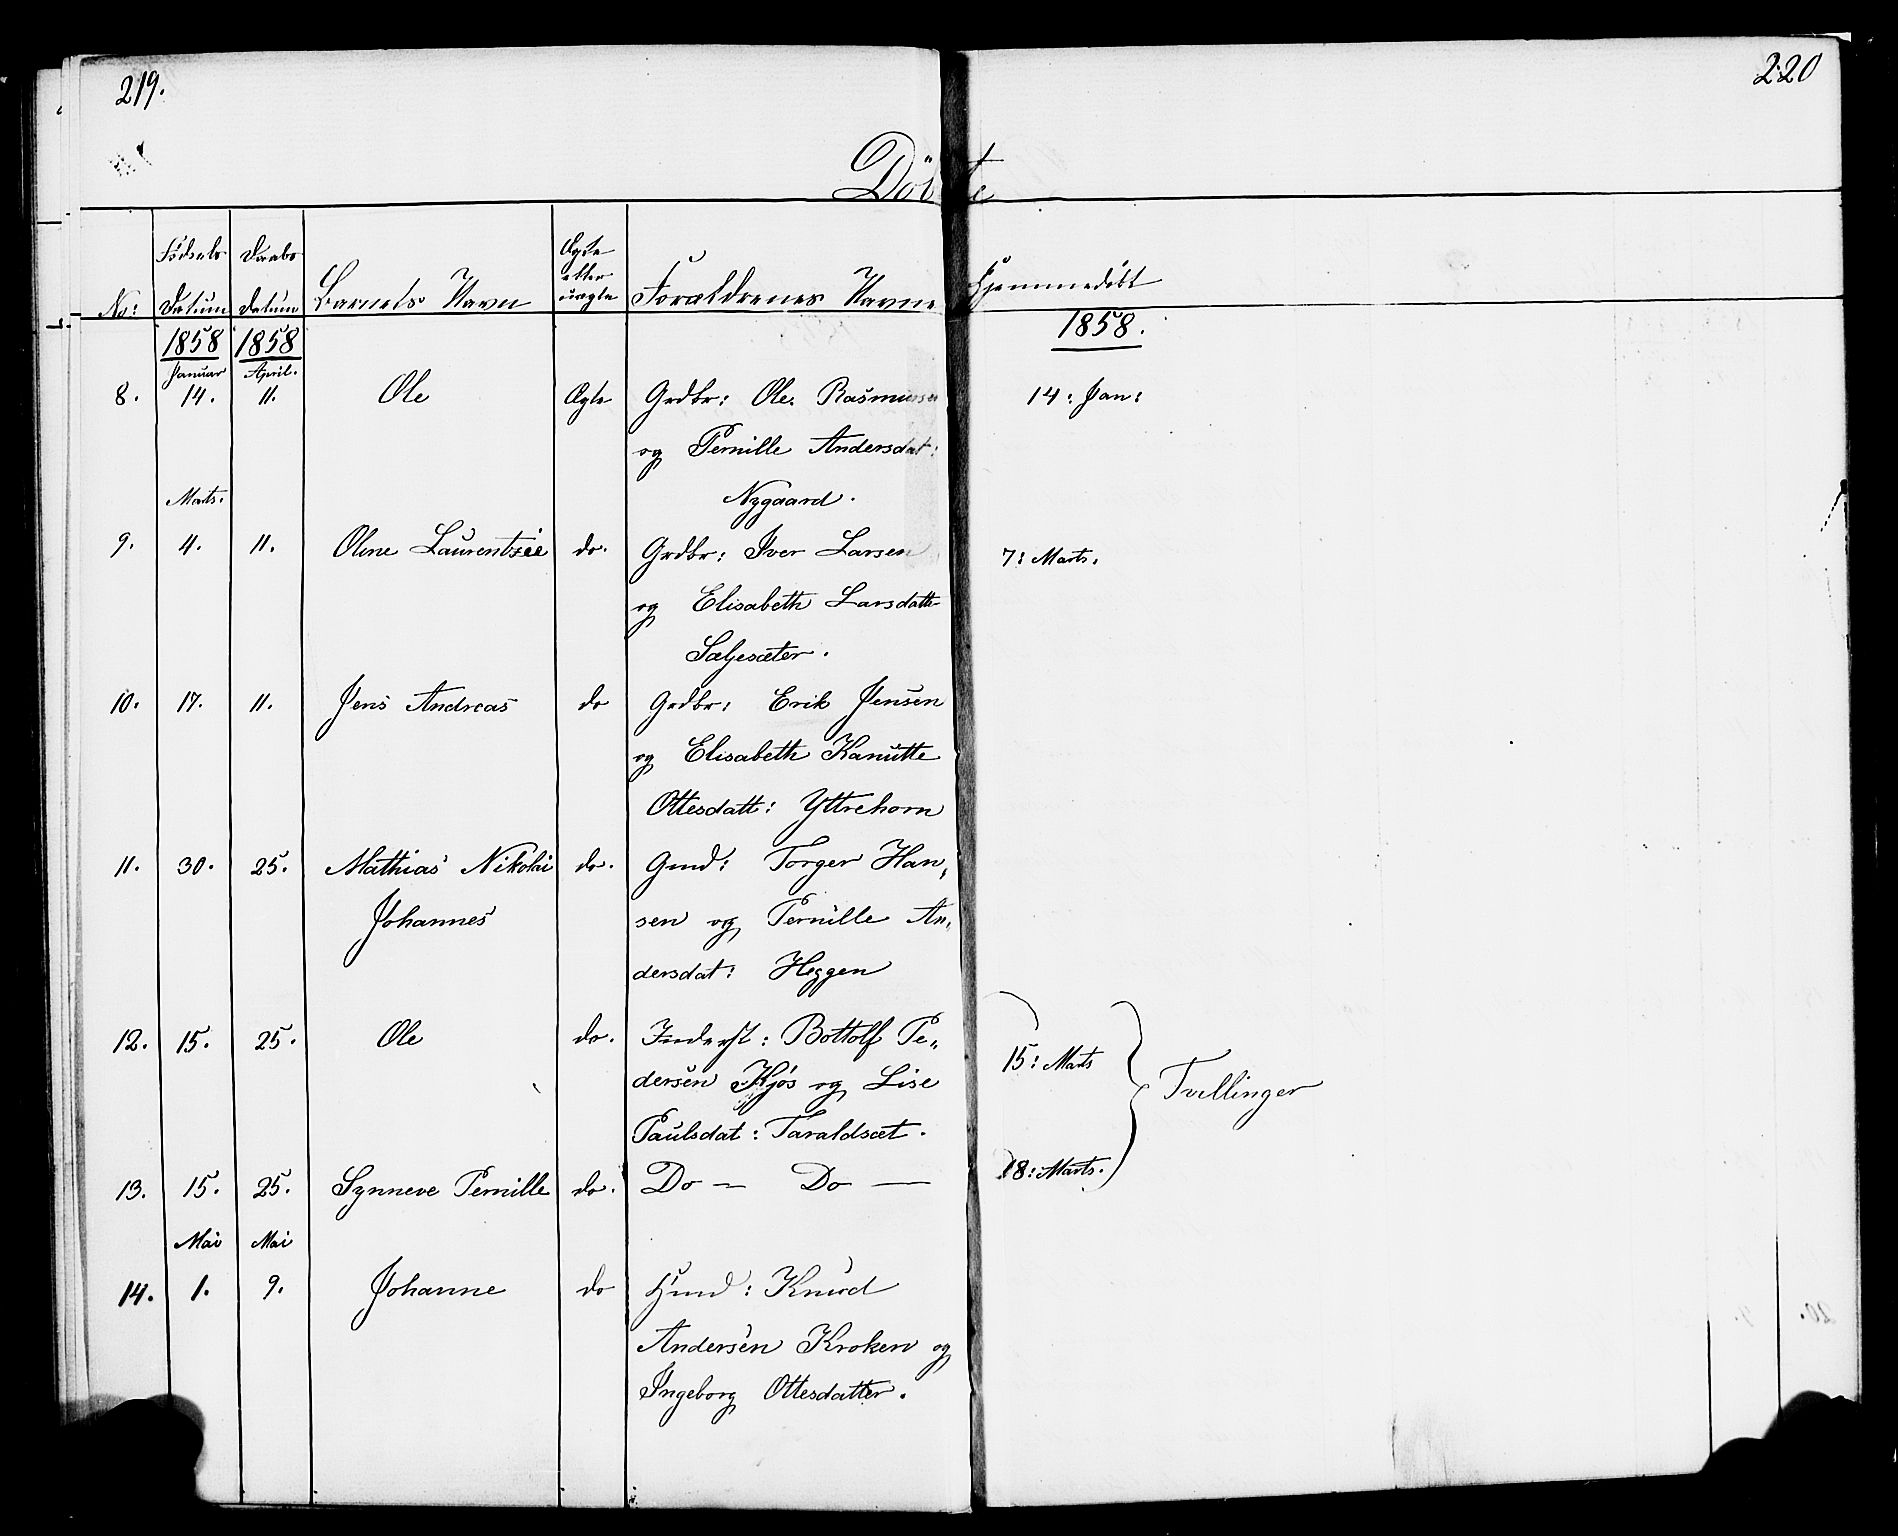 219.
220
Döbte
No: Fødsels Datum Daabs Datum Barnets Navn Ægte eller uægte Forældrenes Navne Hjemmedöbt
1858 1858 1858.
Januar April.
8. 14. 11. Ole Ægte Grdbr: Ole Rasmussen 14: Jan:
og Pernille Andersdat:
Marts. Nygaard.
9. 4. 11. Oline do. Grdbr: Iver Larsen 7: Marts.
og Elisabeth Larsdatt
Sæljesæter.
10. 17. 11. Jens Andreas do Grdbr: Erik Jensen
og Elisabeth Kanutte
Ottesdatt: Yttrehorn
11. 30. 25. Mathias Nikolai do. Gmd: Torger Han,
Johannes sen og Pernille An,
dersdat: Heggen
12. 15. 25. Ole do. Inderst: Bottolf Pe,,
15: Marts
dersen Kjøs og Lise Tvillinger
Paulsdat: Taraldsæt.
13. 15. 25. Synneve Pernille do. Do — Do — 18: Marts.
Mai Mai
14. 1. 9. Johanne do Hmd: Knud
Andersen Kroken og
Ingeborg Ottesdatter.